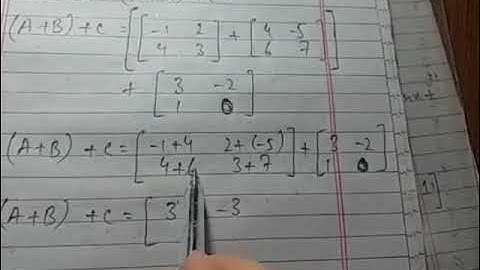 (A+B)+C = [[-1 2] [4 3]] + [[4 -5] [6 7]]
+ [[3 -2] [1 0]]
(A+B) + C = [[-1+4 2+(-5)] [4+6 3+7]] + [[3 -2] [1 0]]
(A+B) + C = [3 -3